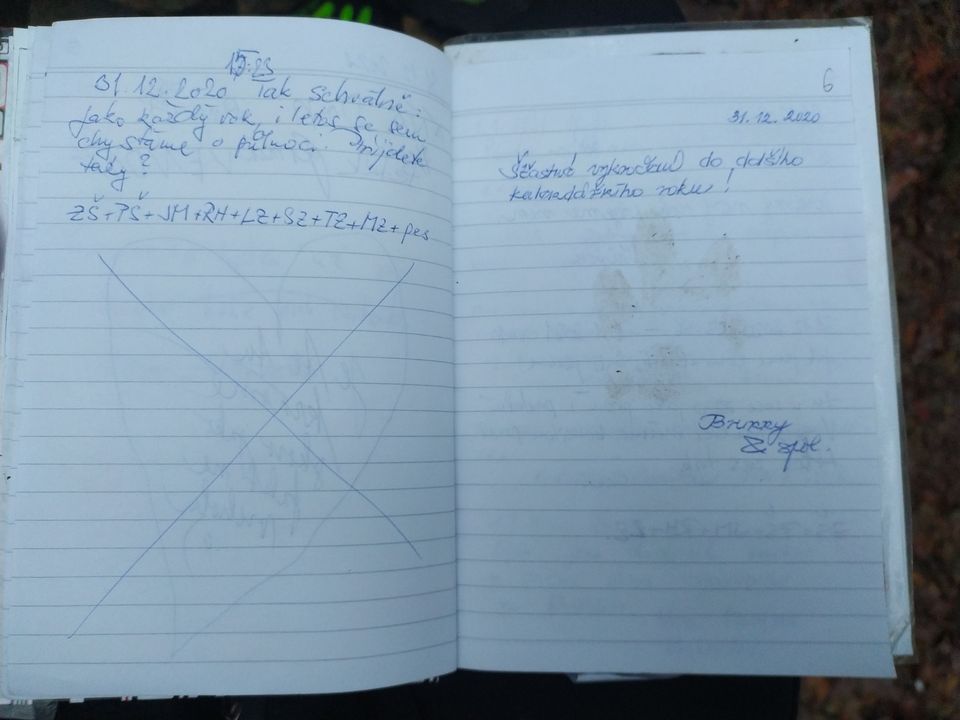 15:23
31.12.2020 Tak schválně:
jako každý rok, i letos se sem
chystáme o půlnoci. Přijdete
taky?
ZŠ+PŠ+JM+RH+LZ+SZ+TZ+MZ+pes
6
31.12.2020
Šťastné vykročení do dalšího
kalendářního roku!
Brixxy
& spol.